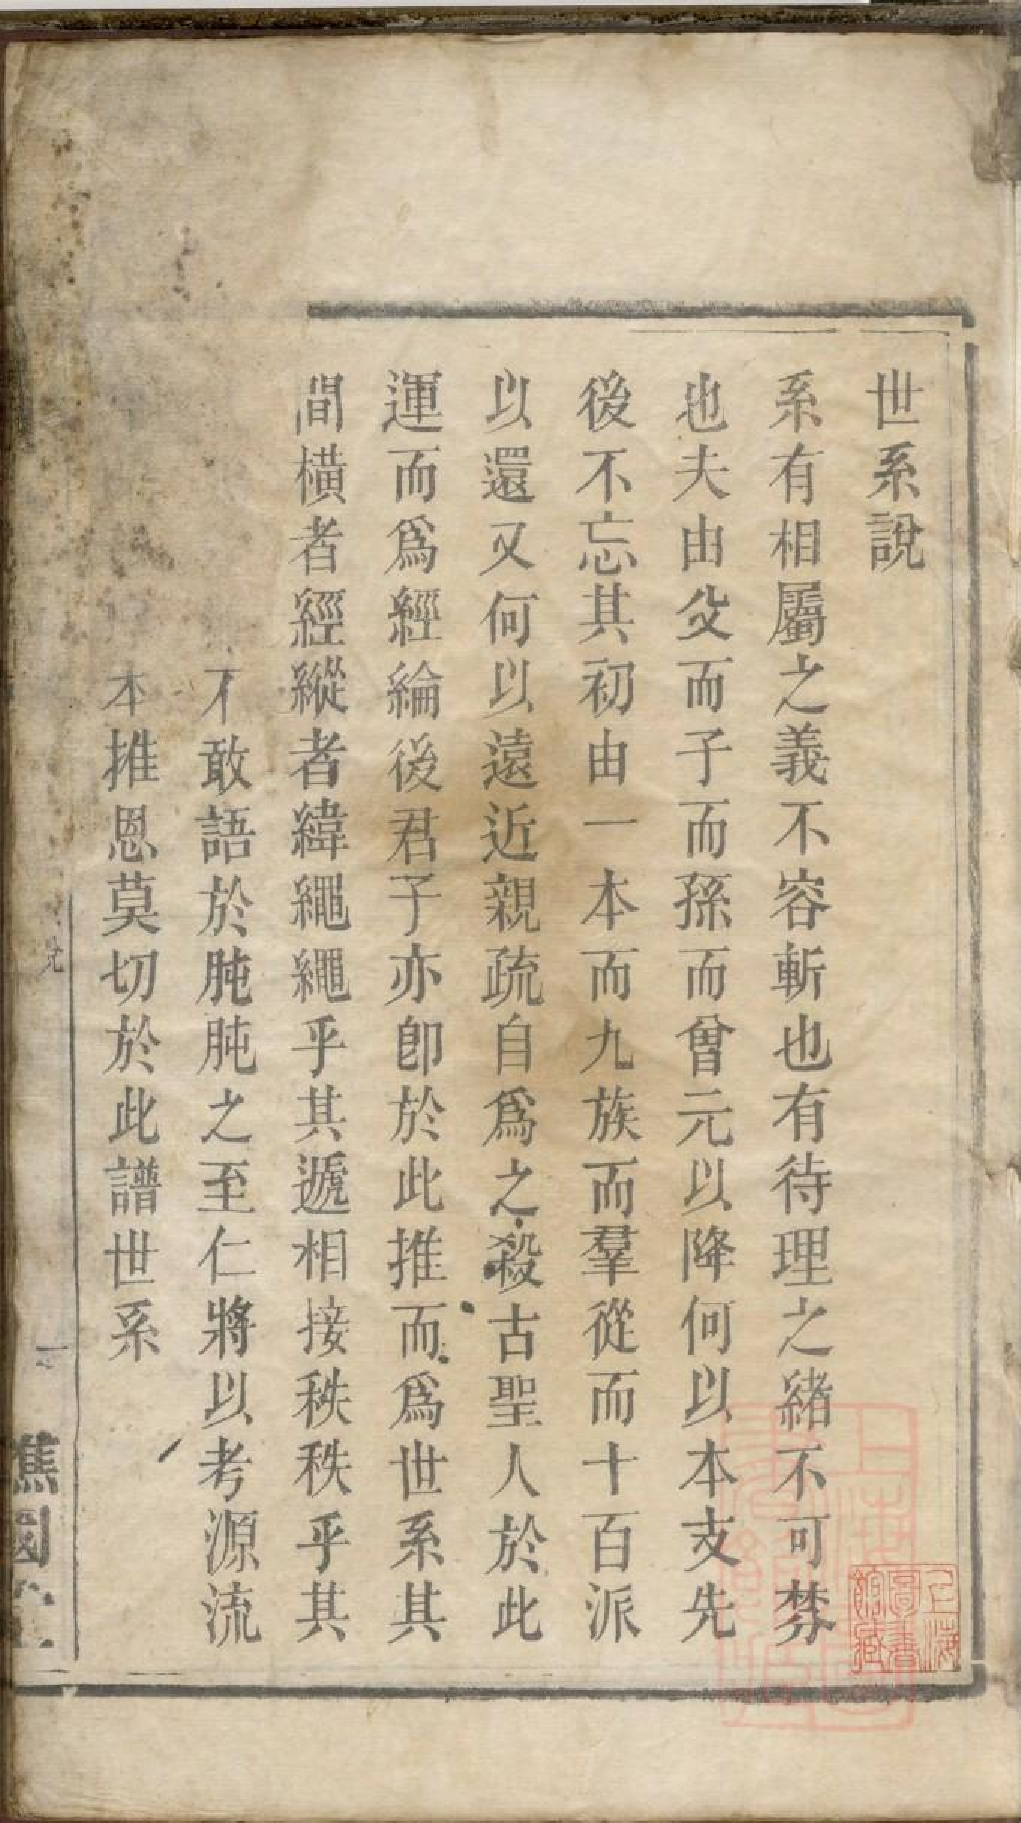 世系說
系有相屬之義不容斬也有待理之緒不可棼
也夫由父而子而孫而曾元以降何以本支先
後不忘其初由一本而九族而羣從而十百派
以還又何以遠近親疏自爲之殺古聖人於此
運而爲經綸後君子亦卽於此推而爲世系其
間橫者經縱者緯繩繩乎其遞相接秩秩乎其
不敢語於肫肫之至仁將以考源流
本推恩莫切於此譜世系
一
譙國
上海圖書館藏